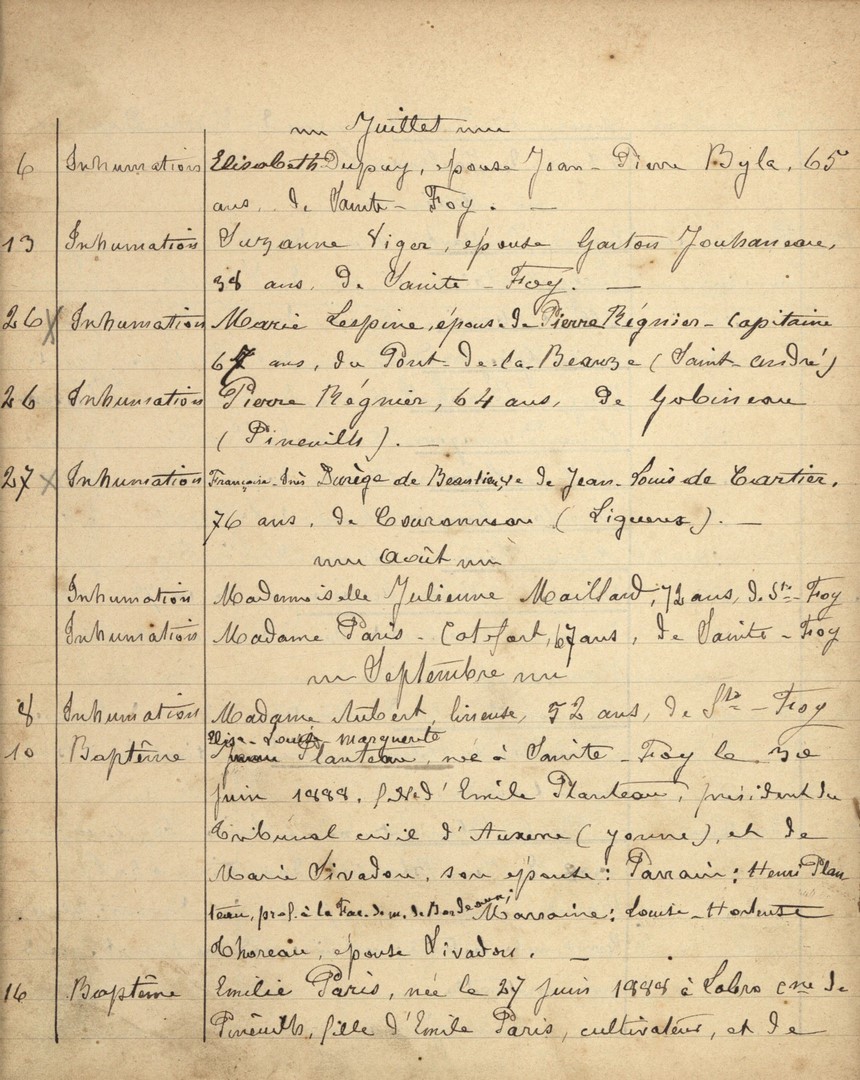 Juillet
6 Inhumation Elisabeth Dupuy, épouse Jean-Pierre Byla, 65
ans, de Sainte-Foy. —
13 Inhumation Suzanne Viger, épouse Gaston Jouhaneau,
38 ans, de Sainte-Foy. —
26 X Inhumation Marie Lespine, épouse de Pierre Régnier-Capitaine
67 ans, du Pont-de-la-Beauze (Saint-André)
26 Inhumation Pierre Régnier, 64 ans, de Gobineau
(Pineuilh). —
27 X Inhumation Françoise-Inès Durège de Beaulieu, Ve de Jean-Louis de Cartier,
76 ans, de Couronneau (Ligueux). —
Août
Inhumation Mademoiselle Julienne Maillard, 72 ans, de Ste-Foy
Inhumation Madame Paris-Cotefort, 67 ans, de Sainte-Foy
Septembre
8 Inhumation Madame Aubert, lineuse, 52 ans, de Ste-Foy
Elise-Louise-Marguerite
10 Baptême Planteau, née à Sainte-Foy le 30
juin 1888, fille d'Emile Planteau, président du
Tribunal civil d'Auxerre (Yonne), et de
Marie Livadou, son épouse: Parrain: Henri Plan
teau, prof. à la Fac. de m. de Bordeaux; Marraine: Louise-Hortense
Choreau, épouse Livadou. —
16 Baptême Emilie Paris, née le 27 juin 1888 à Labro cne de
Pineuilh, fille d'Emile Paris, cultivateur, et de